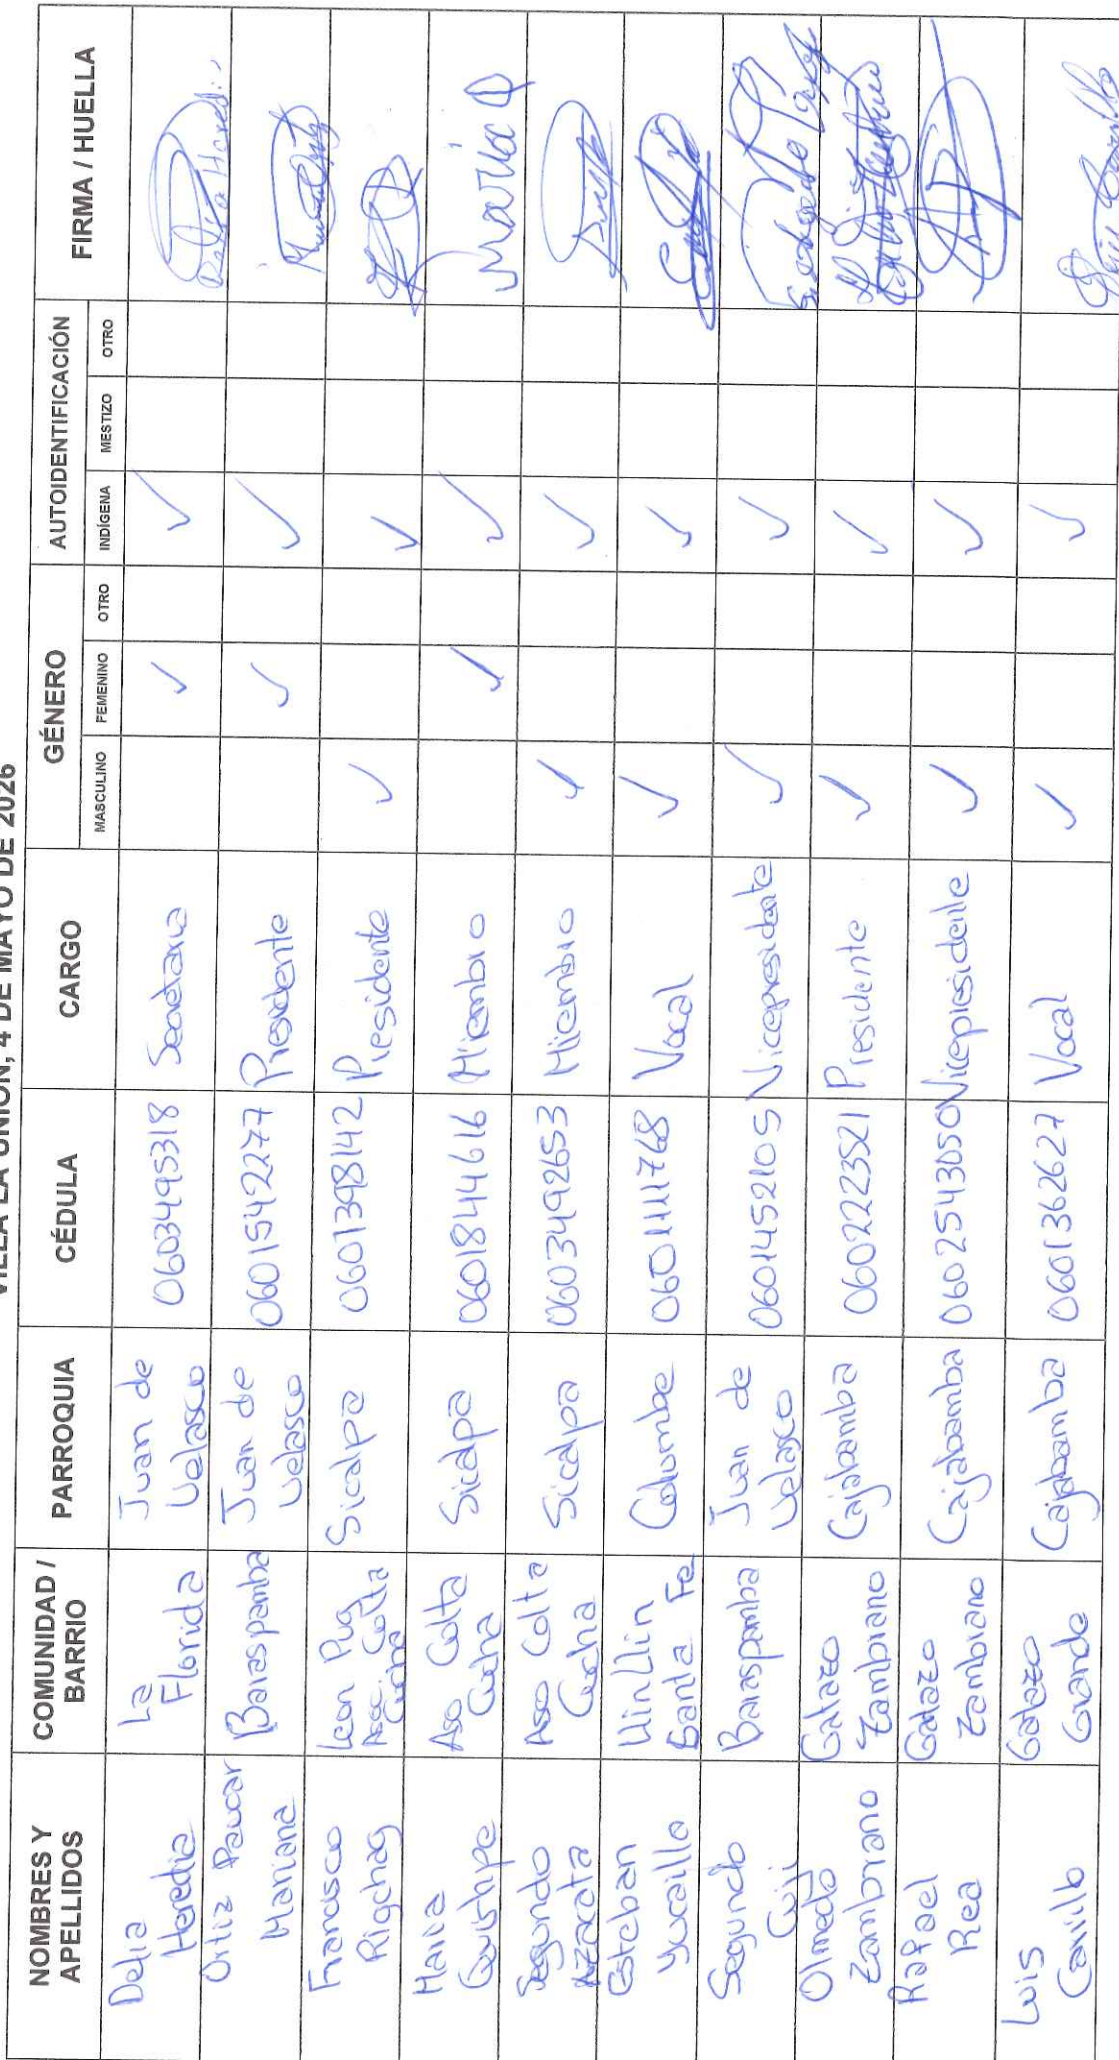 VILLA LA UNIÓN, 4 DE MAYO DE 2026
NOMBRES Y APELLIDOS | COMUNIDAD / BARRIO | PARROQUIA | CÉDULA | CARGO | GÉNERO | AUTOIDENTIFICACIÓN | FIRMA / HUELLA
MASCULINO | FEMENINO | OTRO | INDÍGENA | MESTIZO | OTRO
Delia Heredia | La Florida | Juan de Velasco | 0603495318 | Secretaria | ✓ | ✓
Ortiz Paucar Mariana | Baraspamba | Juan de Velasco | 0601542277 | Presidente | ✓ | ✓
Francisco Rigchag | Leon Pug Asc. Colta Cucha | Sicalpa | 0601398142 | Presidente | ✓ | ✓
Maria Quishpe | Aso Colta Cucha | Sicalpa | 0601844616 | Miembro | ✓ | ✓ | Maria Q
Segundo | Aso Colta Cucha | Sicalpa | 0603492653 | Miembro | ✓ | ✓
Esteban Yucailla | Llinllin Santa Fe | Columbe | 0601111768 | Vocal | ✓ | ✓
Segundo Cuji | Baraspamba | Juan de Velasco | 0601452105 | Vicepresidente | ✓ | ✓
Olmedo Zambrano | Gatazo Zambrano | Cajabamba | 0602223521 | Presidente | ✓ | ✓
Rafael Rea | Gatazo Zambrano | Cajabamba | 0602543050 | Vicepresidente | ✓ | ✓
Luis Carrillo | Gatazo Grande | Cajabamba | 0601362627 | Vocal | ✓ | ✓